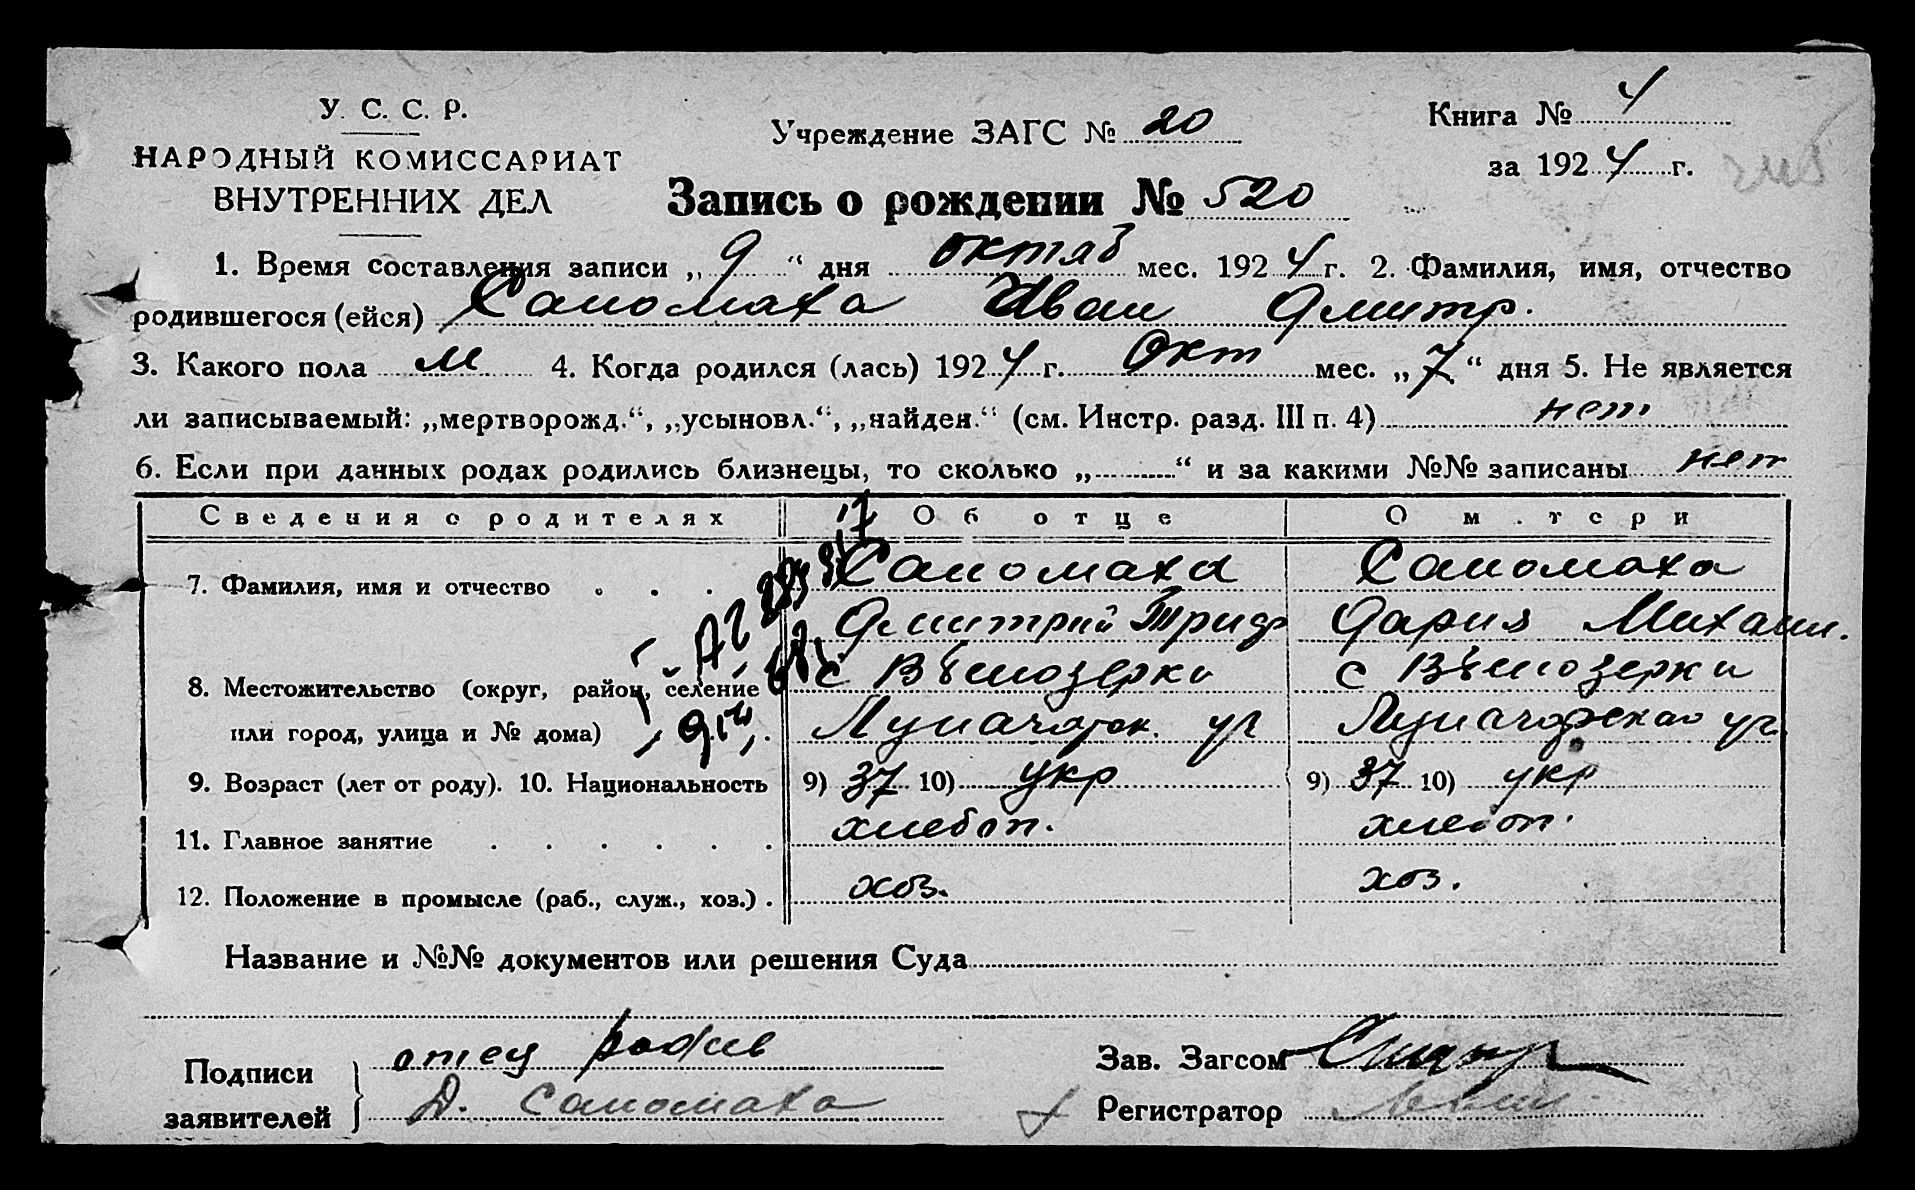 У. С. С. Р.
НАРОДНЫЙ КОМИССАРИАТ
ВНУТРЕННИХ ДЕЛ
Учреждение ЗАГС № 20
Книга № 4
за 1924 г.
Запись о рождении № 520
1. Время составления записи „ 9 “ дня октяб мес. 1924 г. 2. Фамилия, имя, отчество
родившегося (ейся) Сапомаха Иван Дмитр.
3. Какого пола м 4. Когда родился (лась) 1924 г. Окт мес. „ 7 “ дня 5. Не является
ли записываемый: „мертворожд.“, „усыновл.“, „найден.“ (см. Инстр. разд. III п. 4) нет
6. Если при данных родах родились близнецы, то сколько „ “ и за какими №№ записаны нет
Сведения о родителях Об отце О м.тери
7. Фамилия, имя и отчество Сапомаха Сапомаха
Дмитрий Триф Дария Михаил.
8. Местожительство (округ, район, селение с Білозерки с Білозерки
или город, улица и № дома) Луначарск. ул Луначарская ул.
9. Возраст (лет от роду). 10. Национальность 9) 37 10) укр 9) 37 10) укр
11. Главное занятие хлебоп. хлебоп.
12. Положение в промысле (раб., служ., хоз.) хоз. хоз.
Название и №№ документов или решения Суда
Подписи отец
заявителей Д. Сапомаха
Зав. Загсом
Регистратор